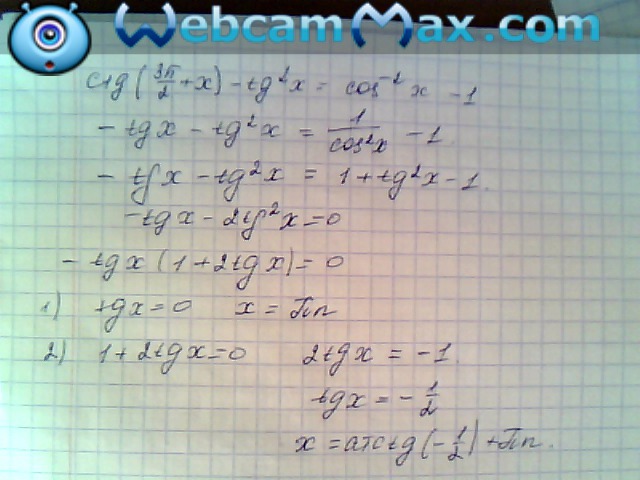 WebcamMax.com
ctg(3π/2 + x) - tg²x = cos⁻²x - 1
- tgx - tg²x = 1/cos²x - 1.
- tgx - tg²x = 1 + tg²x - 1.
- tgx - 2tg²x = 0
- tgx (1 + 2tgx) = 0
1) tgx = 0 x = πn
2) 1 + 2tgx = 0 2tgx = -1.
tgx = - 1/2
x = arctg(- 1/2) + πn.